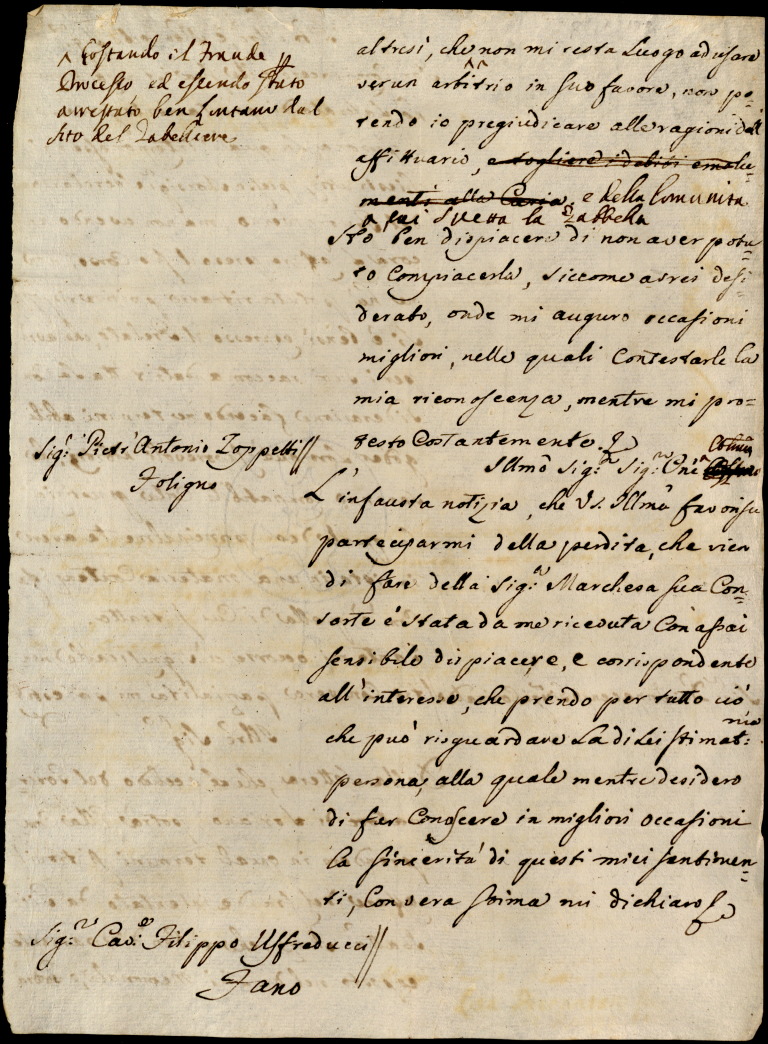 ^ Costando il Fraude //
Processo ed essendo stato
arrestato ben lontano dal
sito del Tabelliere
altresì, che non mi resta luogo ad usare
verun arbitrio in suo favore, non po-
tendo io pregiudicare alle ragioni dell
affittuario, e togliere i debiti emolu-
menti alla Curia, e della Comunità
a cui spetta la Zabbella
Sto ben dispiacere di non aver potu-
to compiacerla, siccome avrei desi-
derato, onde mi auguro occasioni
migliori, nelle quali contestarle la
mia riconoscenza, mentre mi pro-
testo costantemente &
Sig.r Pietr'Antonio Zoppetti //
Foligno
Illmo Sig.r Sig.r Cne Colmo
L'infausta notizia, che V.S. Illma favorisce
parteciparmi della perdita, che vien
di fare della Sig.ra Marchesa sua Con-
sorte è stata da me ricevuta con assai
sensibile dispiacere, e corrispondente
all'interesse, che prendo per tutto ciò
che può risguardare la di Lei stimat:ma
persona, alla quale mentre desidero
di far conoscere in migliori occasioni
la sincerità di questi miei sentimen-
ti, con vera stima mi dichiaro &
Sig.r Cav.re Filippo Uffreducci //
Fano